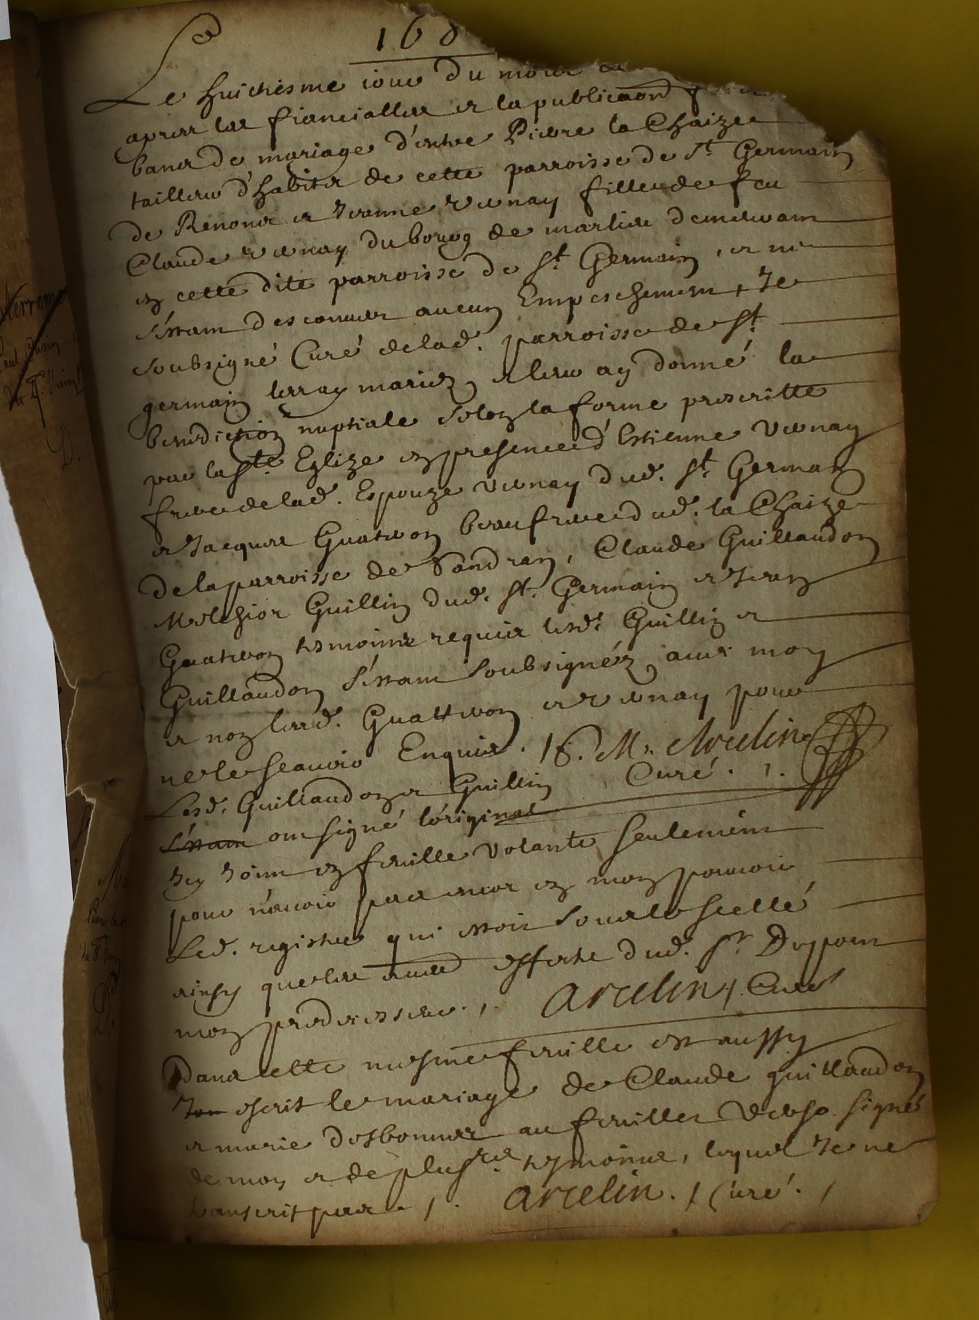 168
Le huictiesme iour du mois
apres les fiancialles et la publicaon
bans de mariage d'entre Pierre la Chaize
tailleur d'habits de cette parroisse de St Germain
de Renons et Jeanne Vernay fille de feu
Claude Vernay du bourg de demeurant
en cette dite parroisse de St Germain, et ne
s'estant descouuer aucun Empeschement, Je
soubsigné Curé de lad. parroisse de St
germain les ay mariez et leur ay donné la
benediction nuptiale selon la forme prescritte
par la Ste Eglize en presence d'Estienne Vernay
frere de lad. Espouze Vernay dud. St Germain
et Jacques Guatheron beau frere dud. la Chaize
de la parroisse de Vandran, Claude Guillaudon
Melchior Guillin dud. St. Germain et Jean
tesmoins requis lesd. Guillin et
Guillaudon s'estant soubsignéz auec moy
et non lesd. et Vernay pour
ne le scauoir Enquis. M. Arcelin
Curé.
Lesd. Guillaudon et Guillin
s'estant ont signé l'original
Icy Joint en feuille volante seulement
pour n'auoir pas encor en mon pouuoir
Led. registre qui estoit soubs le scellé
ainsy que les effects dud. Sr Dupont
mon predecesseur. Arcelin, Curé
Dans cette mesme feuille est aussy
escrit le mariage de Claude guillaudon
et marie desbonnes au feuillet verso signé
de moy et de plusrs tesmoins, lequel Je ne
transcrit pas. arcelin. Curé.